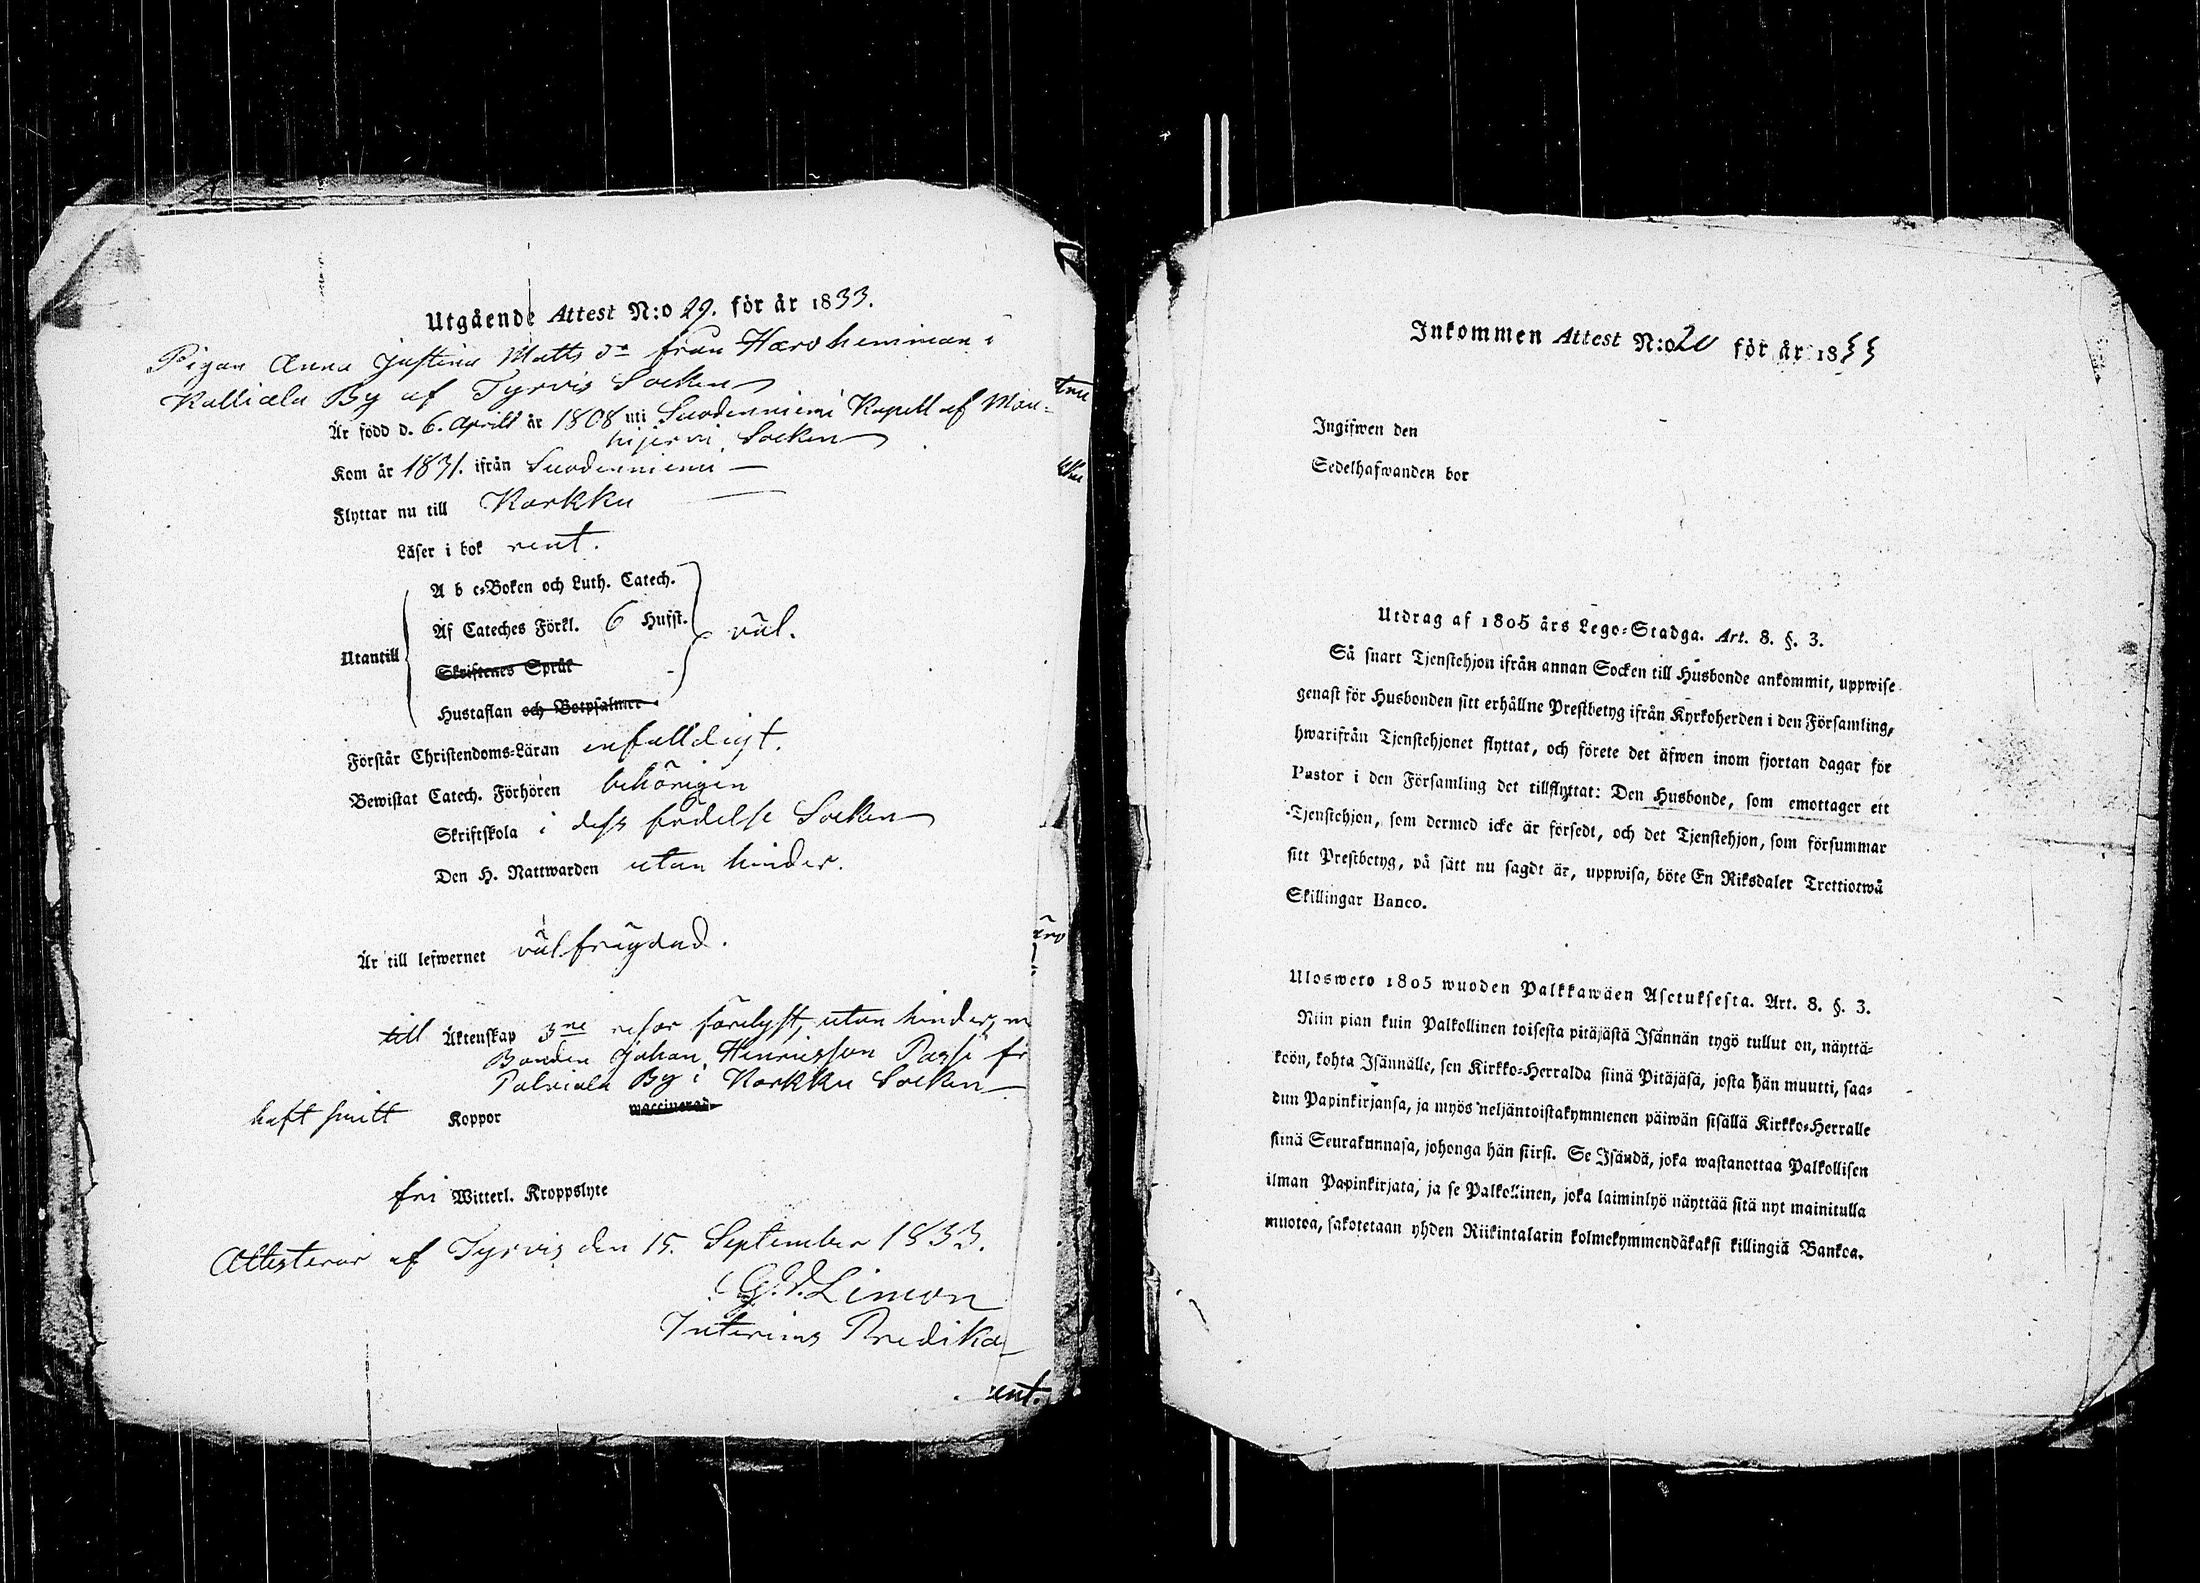 Utgående Attest N:o 29. för år 1833.
Pigan Anna Justina Matts dr från Hærö hemman i
Kalliala By af Tyrvis Socken
Är född d. 6. April år 1808 uti Suodenniemi Kapell af Mou-
hijervi Socken
Kom år 1831. ifrån Suodenniemi —
Flyttar nu till Karkku —
Läser i bok rent.
A b c-Boken och Luth. Catech.
Af Cateches Förkl. 6 Hufst.
väl.
Utantill
Skriftenes Språk
Hustaflan och Botpsalmer
Förstår Christendoms-Läran enfalldigt.
Bewistat Catech. Förhören behörigen
Skriftskola i dess födelse Socken
Den H. Nattwarden utan hinder.
Är till lefwernet välfrägdad.
till Äktenskap 3ne resor förelyst, utan hinder, m
Bonden Johan Henricsson Passi fr
Palviala By i Karkku Socken —
haft smitt Koppor waccinerad
fri Witterl. Kroppslyte
Attesterar af Tyrvis den 15. September 1833.
G. V. Limon
Interims Predika
ent.
Inkommen Attest N:o 20 för år 1833
Ingifwen den
Sedelhafwanden bor
Utdrag af 1805 års Lego-Stadga. Art. 8. §. 3.
Så snart Tjenstehjon ifrån annan Socken till Husbonde ankommit, uppwise
genast för Husbonden sitt erhållne Prestbetyg ifrån Kyrkoherden i den Församling,
hwarifrån Tjenstehjonet flyttat, och förete det äfwen inom fjortan dagar för
Pastor i den Församling det tillflyttat: Den Husbonde, som emottager ett
Tjenstehjon, som dermed icke är försedt, och det Tjenstehjon, som försummar
sitt Prestbetyg, på sätt nu sagdt är, uppwisa, böte En Riksdaler Trettiotwå
Skillingar Banco.
Ulosweto 1805 wuoden Palkkawäen Asetuksesta. Art. 8. §. 3.
Niin pian kuin Palkollinen toisesta pitäjästä Isännän tygö tullut on, näyttä-
köön, kohta Isännälle, sen Kirkko-Herralda siinä Pitäjäsä, josta hän muutti, saa-
dun Papinkirjansa, ja myös neljäntoistakymmenen päiwän sisällä Kirkko-Herralle
siinä Seurakunnasa, johonga hän siirsi. Se Isändä, joka wastanottaa Palkollisen
ilman Papinkirjata, ja se Palkollinen, joka laiminlyö näyttää sitä nyt mainitulla
muotoa, sakotetaan yhden Riikintalarin kolmekymmendäkaksi killingiä Bankoa.